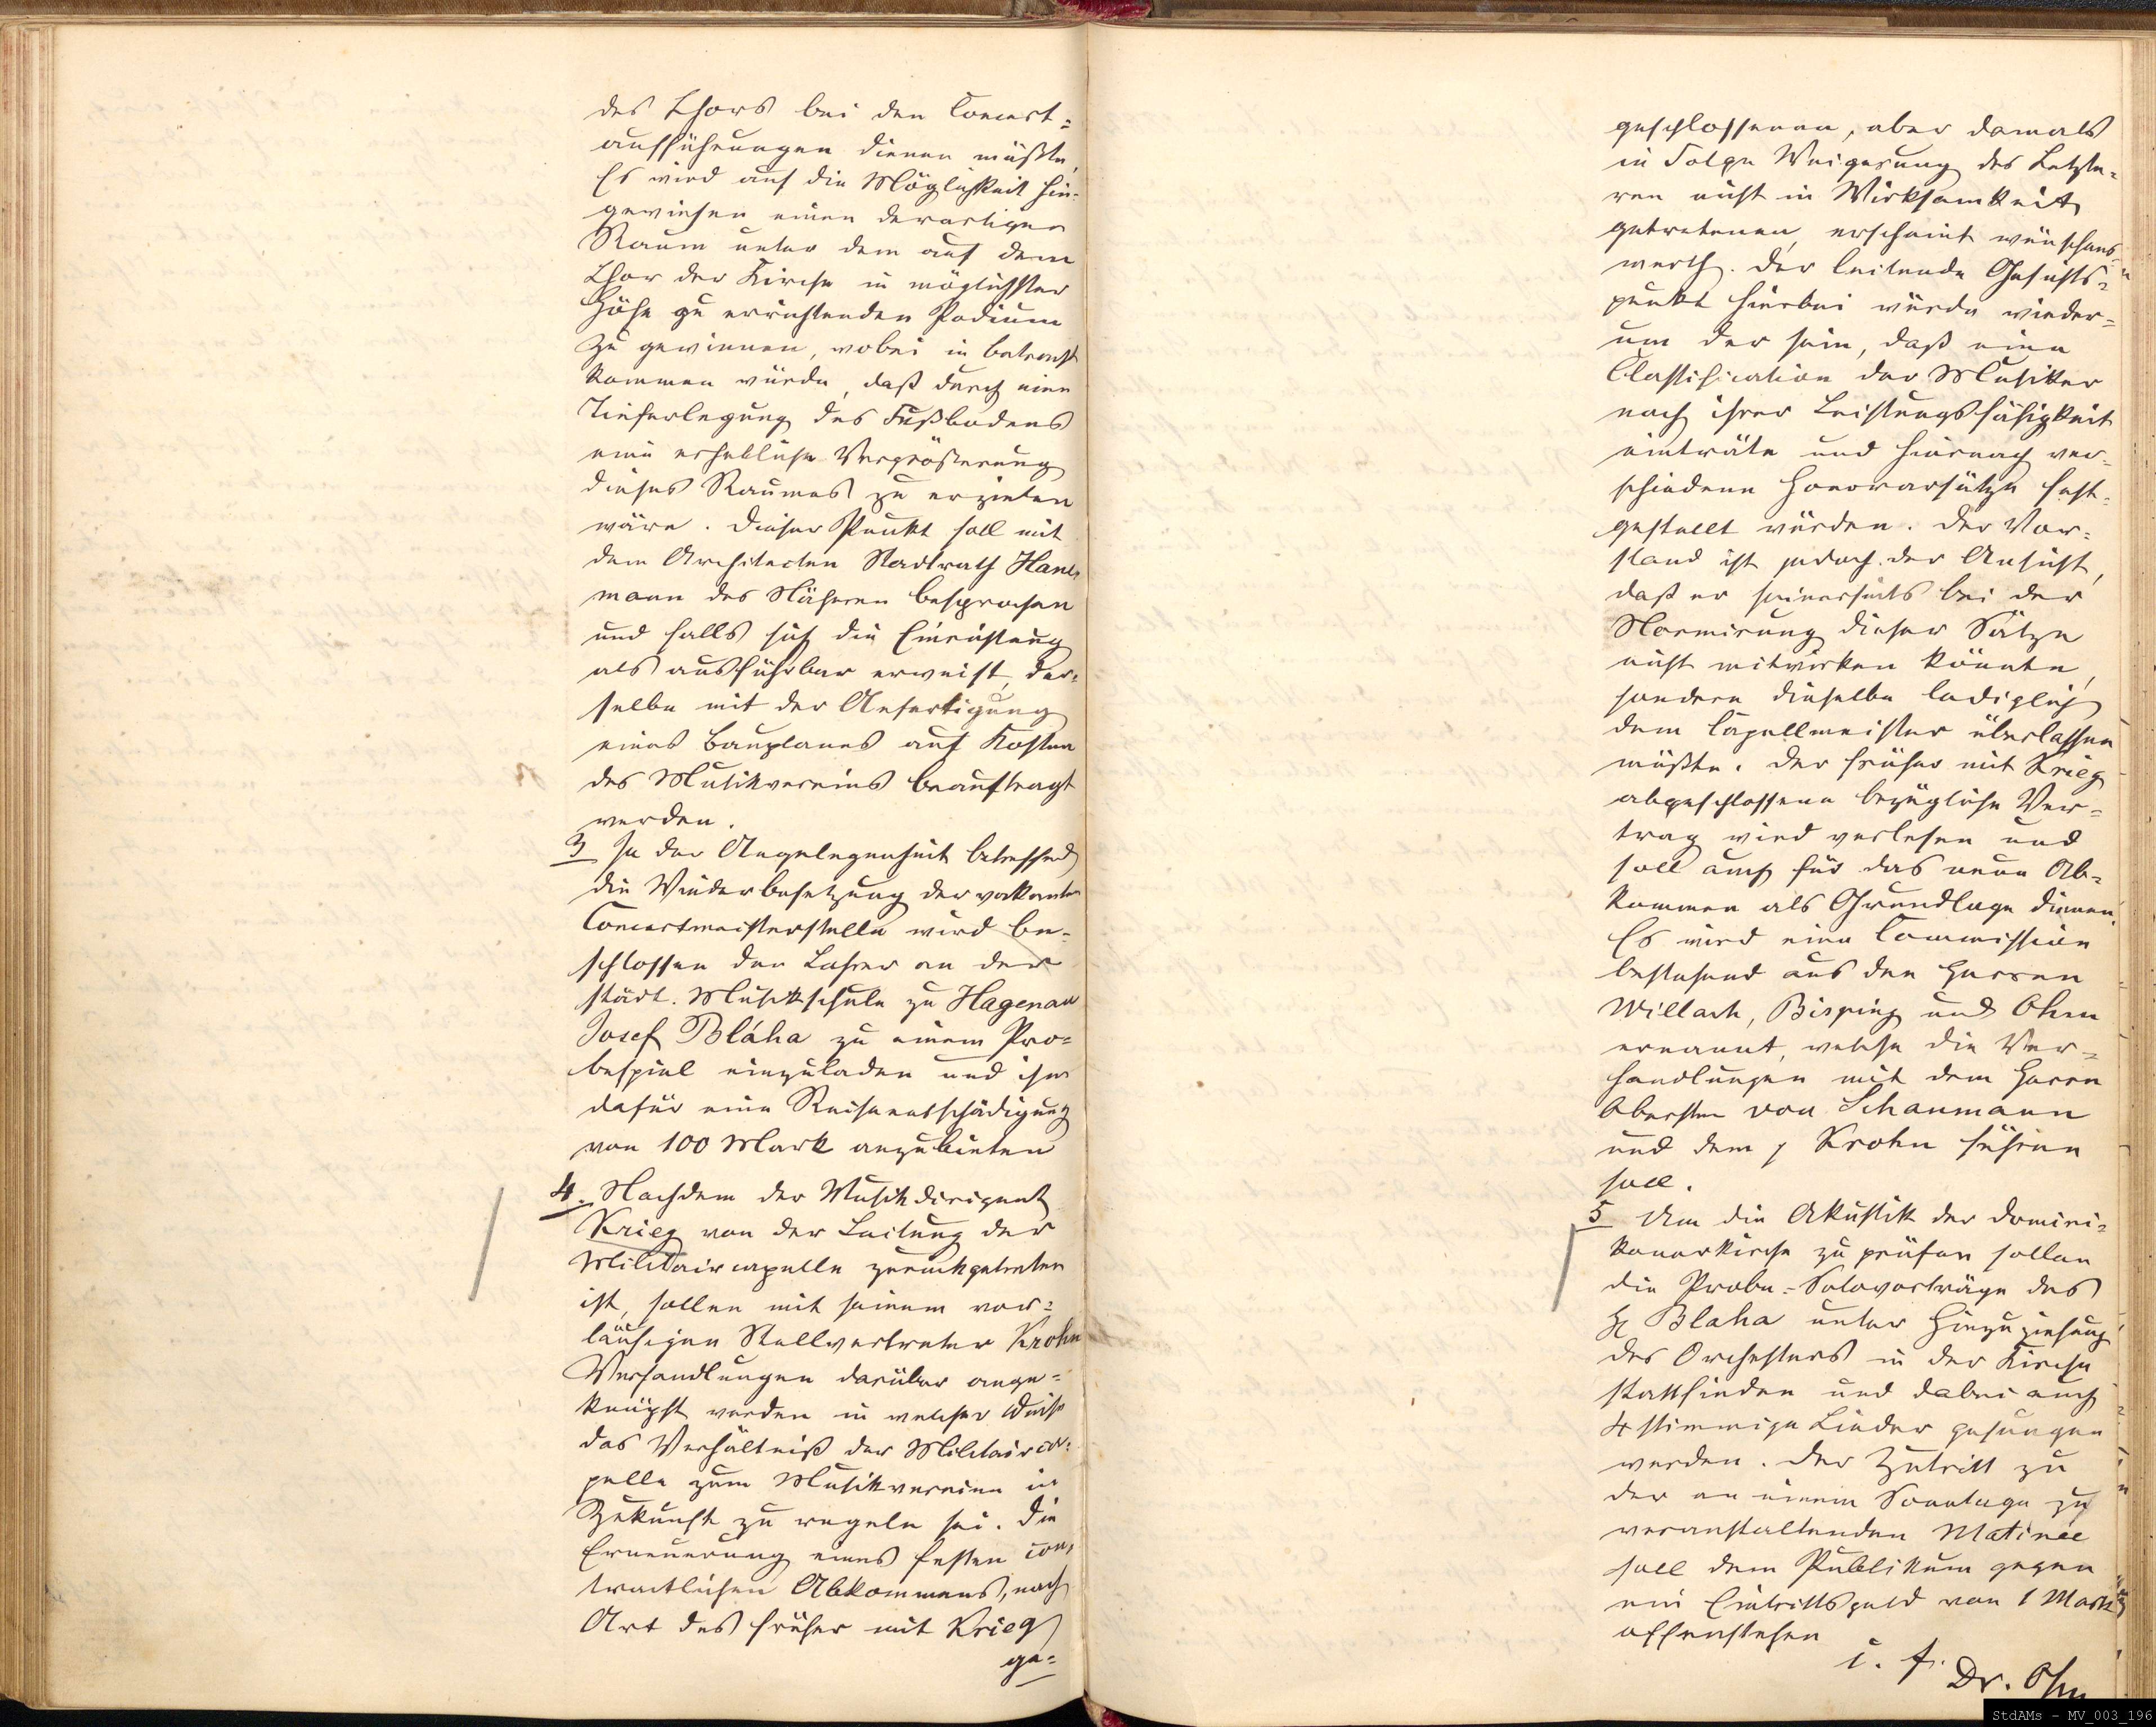 des Chors bei den Concert-
aufführungen dienen müßte,
Es wird auf die Möglichkeit hin-
gewiesen einen derartigen
Raum unter dem auf dem
Chor der Kirche in möglichster
Höhe zu errichtenden Podium
zu gewinnen, wobei in betracht
kommen würde, daß durch eine
Tieferlegung des Fußbodens
eine erhebliche Vergrößerung
dieses Raumes zu erzielen
wäre. Dieser Punkt soll mit
dem Architecten Stadtrath Hane-
mann des Näheren besprochen
und falls sich die Einrichtung
als ausführbar erweist, der-
selbe mit der Anfertigung
eines Bauplanes auf Kosten
des Musikvereins beauftragt
werden.
3 In der Angelegenheit betreffend
die Wiederbesetzung der vakanten
Concertmeisterstelle wird be-
schlossen den Lehrer an der
städt. Musikschule zu Hagenau
Josef Bláha zu einem Pro-
bespiel einzuladen und ihm
dafür eine Reiseentschädigung
von 100 Mark anzubieten
4. Nachdem der Musikdirigent
Krieg von der Leitung der
Militaircapelle zurückgetreten
ist, sollen mit seinem vor-
läufigen Stellvertreter Krohn
Verhandlungen darüber ange-
knüpft werden in welcher Weise
das Verhältniß der Militairca-
pelle zum Musikvereine in
Zukunft zu regeln sei. Die
Erneuerung eines festen con-
tractlichen Abkommens, nach
Art des früher mit Krieg
ge-
geschlossenen, aber damals
in Folge Weigerung des Letzte-
ren nicht in Wirksamkeit
getretenen, erscheint wünschens-
werth. Der leitende Gesichts-
punkt hierbei würde wieder-
um der sein, daß eine
Classification der Musiker
nach ihrer Leistungsfähigkeit
einträte und hiernach ver-
schiedene Honorarsätze fest-
gestellt würden. Der Vor-
stand ist jedoch der Ansicht,
daß er seinerseits bei der
Normirung dieser Sätze
nicht mitwirken könnte,
sondern dieselbe lediglich
dem Capellmeister überlassen
müßte. Der früher mit Krieg
abgeschlossene bezügliche Ver-
trag wird verlesen und
soll auch für das neue Ab-
kommen als Grundlage dienen.
Es wird eine Commission
bestehend aus den Herren
Willach, Bisping und Ohm
ernannt, welche die Ver-
handlungen mit dem Herrn
Obersten von Schaumann
und dem Krohn führen
soll.
5 Um die Akustik der Domini-
kanerkirche zu prüfen sollen
die Probe-Solovorträge des
H Blaha unter Hinzuziehung
des Orchesters in der Kirche
stattfinden und dabei auch
4 stimmige Lieder gesungen
werden. Der Zutritt zu
der an einem Sonntage zu
veranstaltenden Matinée
soll dem Publikum gegen
ein Eintrittsgeld von 1 Mark
offenstehen
i. f. Dr. Ohm
StdAMs - MV_003_196